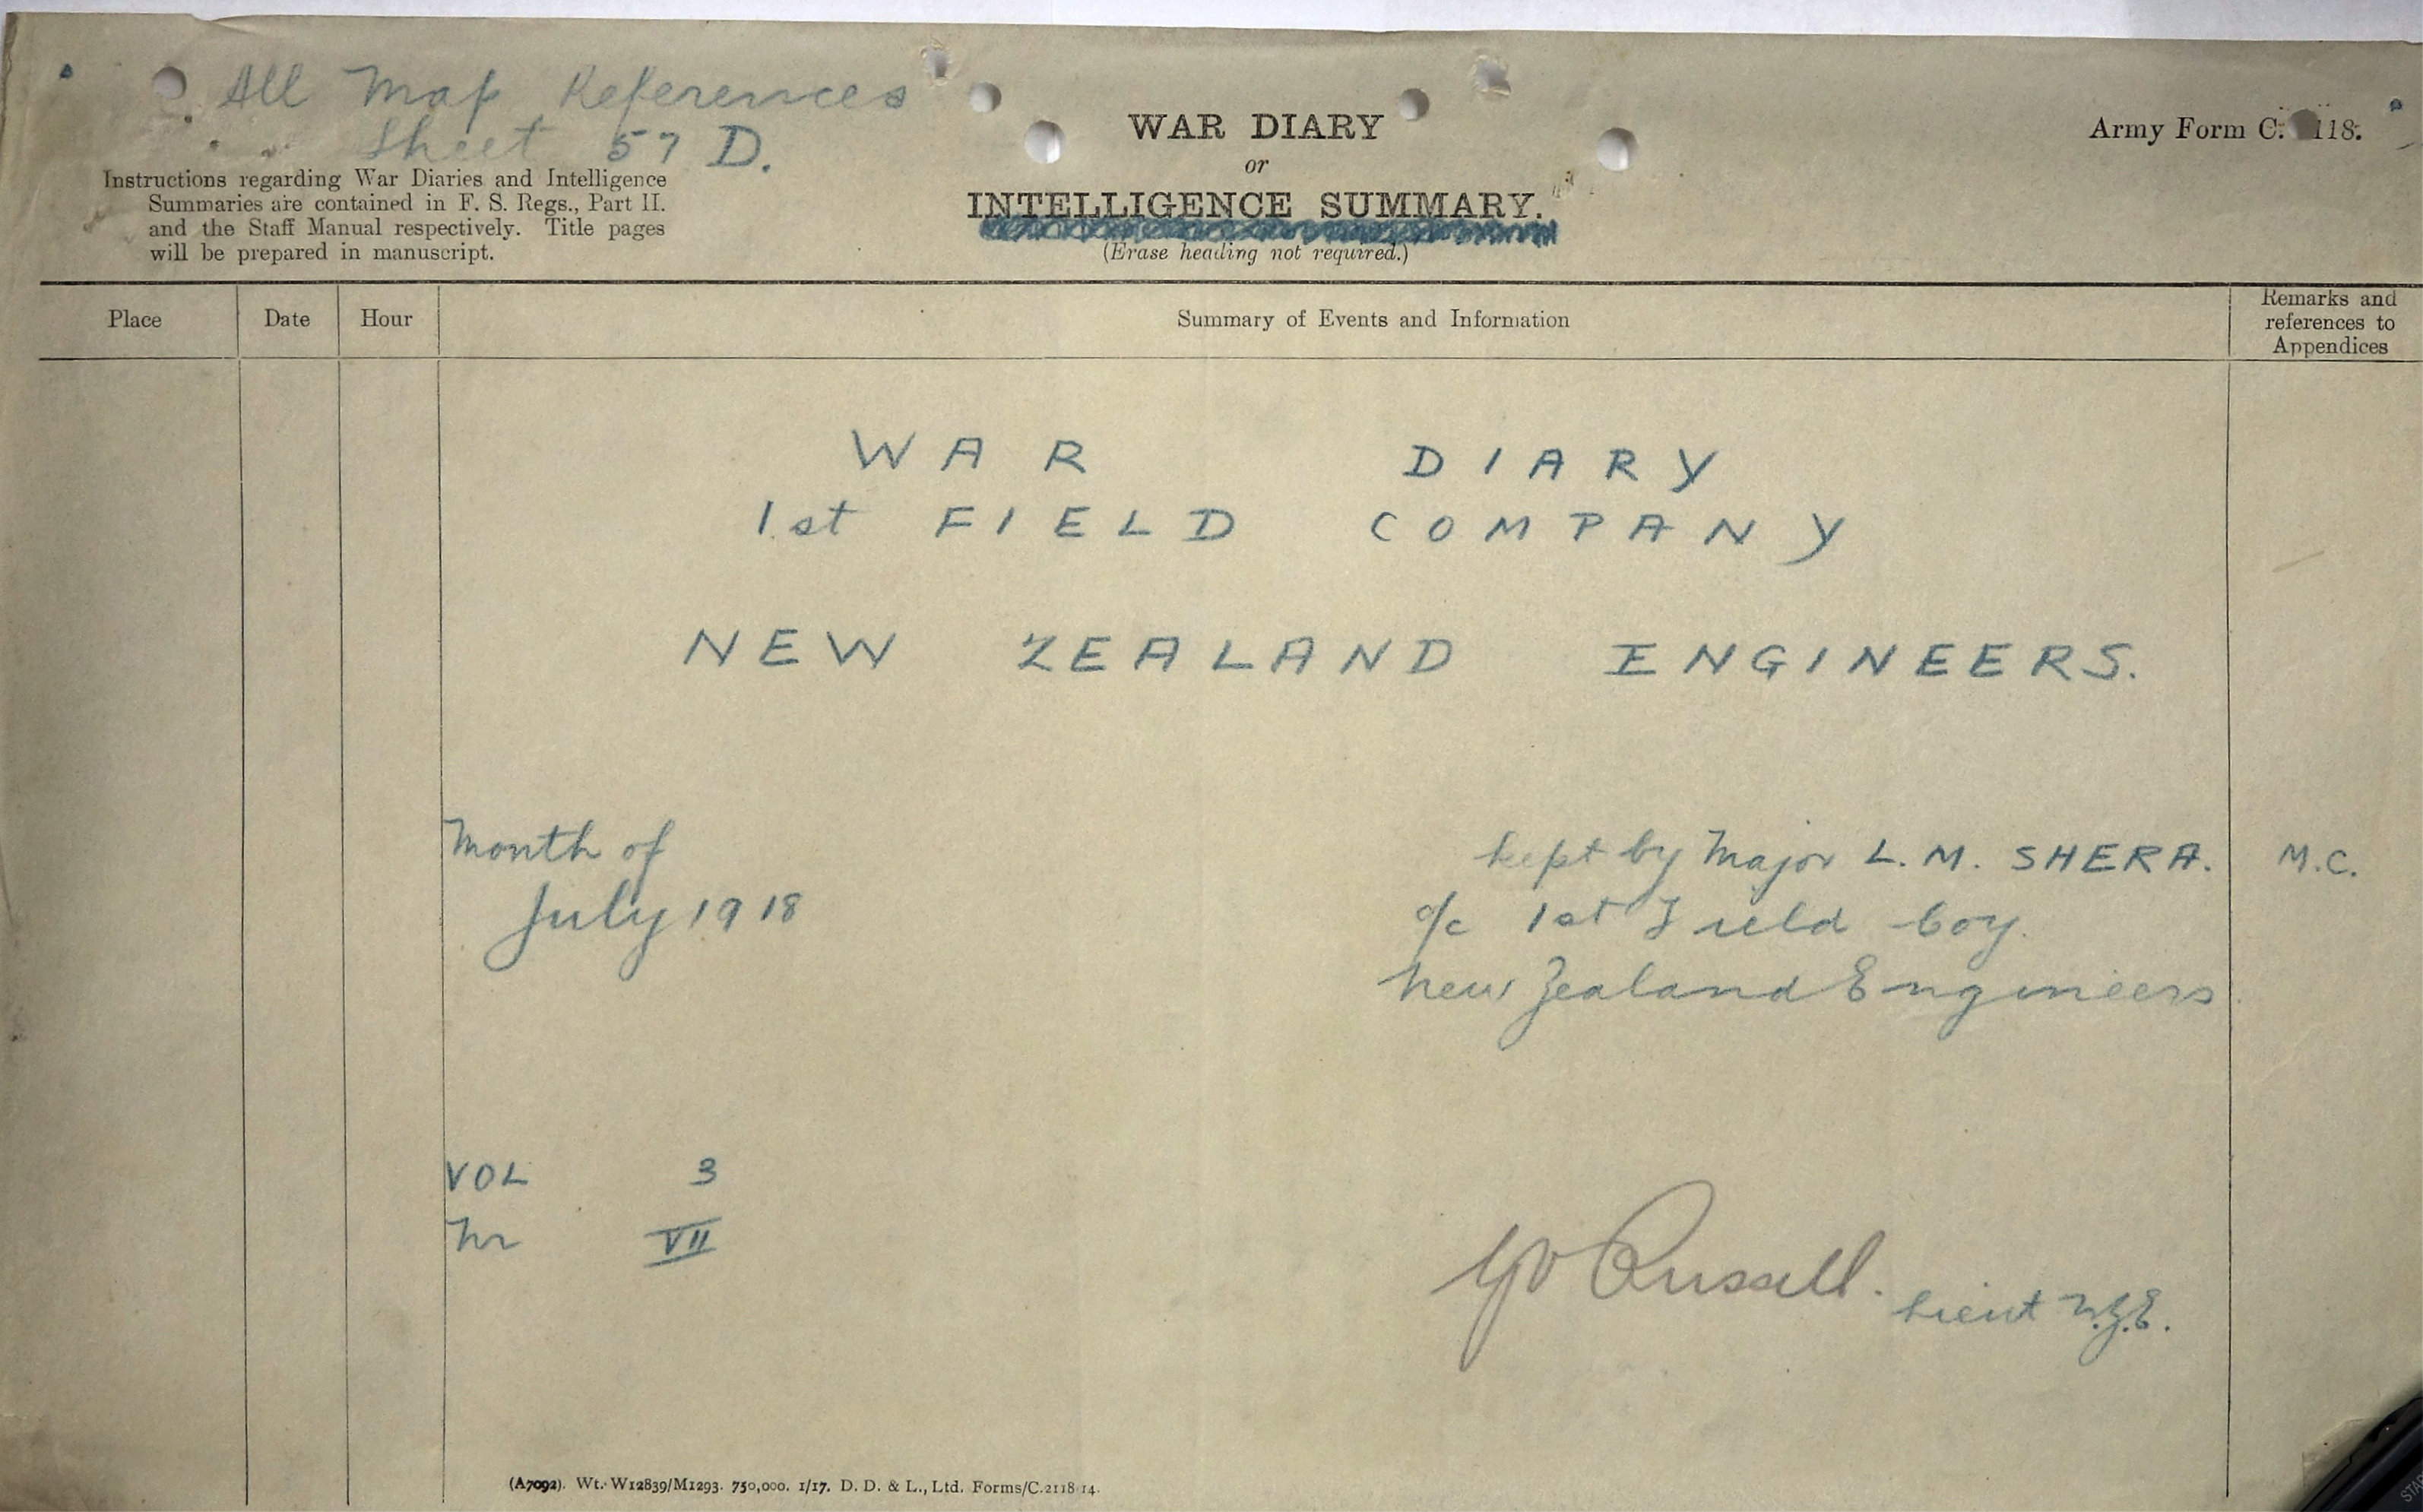 All Map References
Sheet 57 D.
WAR DIARY
or
INTELLIGENCE SUMMARY.
(Erase heading not required.)
Army Form C. 118.
Instructions regarding War Diaries and Intelligence
Summaries are contained in F. S. Regs., Part II.
and the Staff Manual respectively. Title pages
will be prepared in manuscript.
Place Date Hour Summary of Events and Information Remarks and
references to
Appendices
WAR DIARY
1st FIELD COMPANY
NEW ZEALAND ENGINEERS.
Month of
July 1918
kept by Major L. M. SHERA. M.C.
o/c 1st Field Coy.
New Zealand Engineers.
VOL 3
Nr VII
Russell. Lieut N.Z.E.
(A7092). Wt. W12839/M1293. 750,000. 1/17. D. D. & L., Ltd. Forms/C.2118/14.